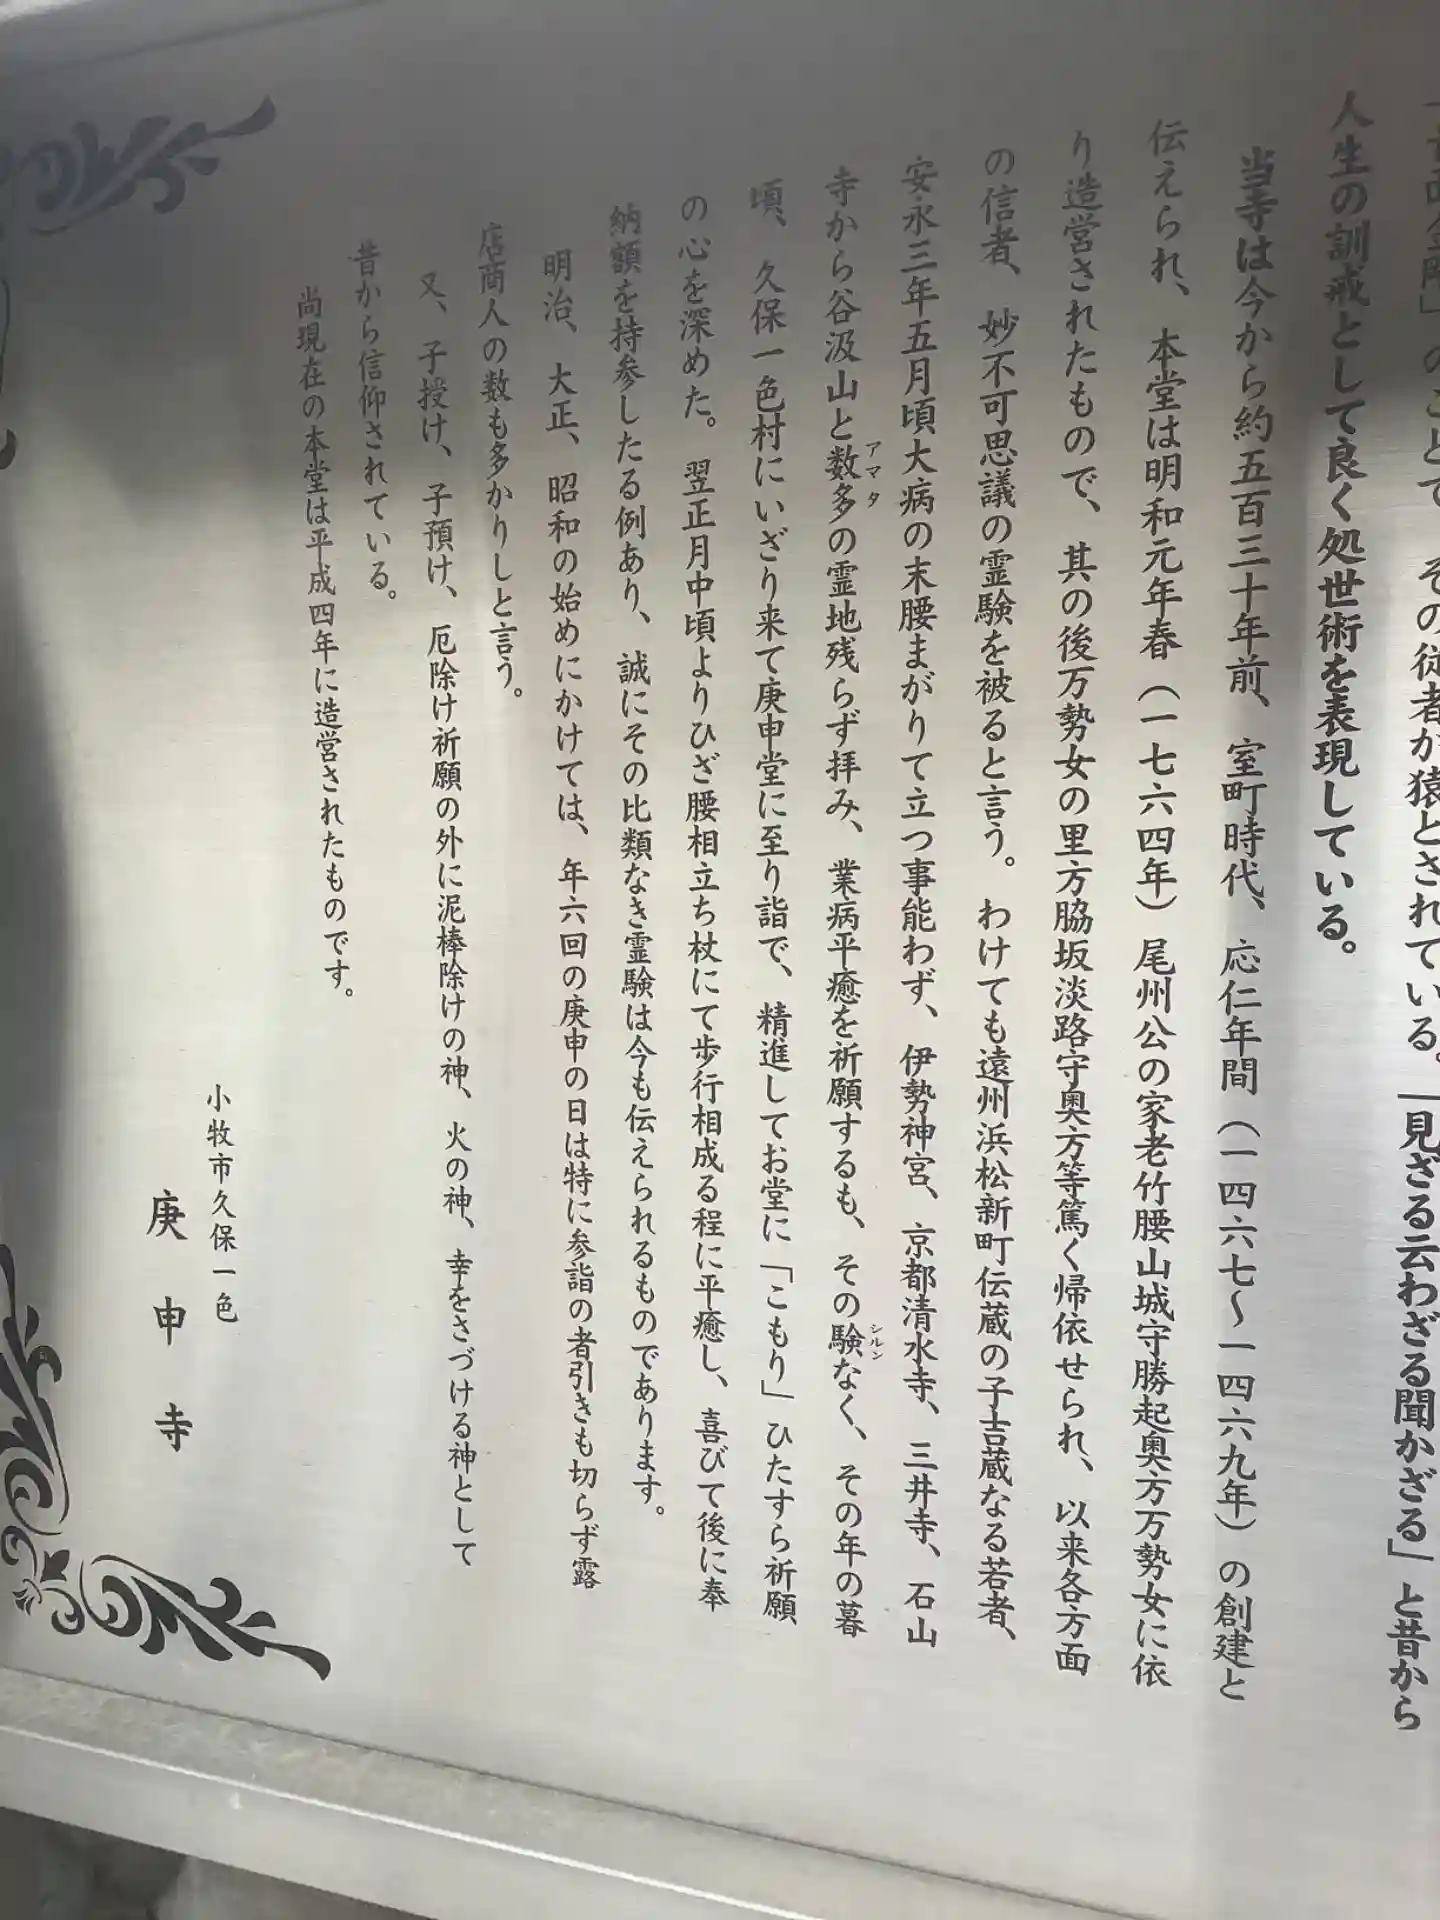 のことで、その従者が猿とされている。「見ざる云わざる聞かざる」と昔から
人生の訓戒として良く処世術を表現している。
当寺は今から約五百三十年前、室町時代、応仁年間（一四六七〜一四六九年）の創建と
伝えられ、本堂は明和元年春（一七六四年）尾州公の家老竹腰山城守勝起奥方万勢女に依
り造営されたもので、其の後万勢女の里方脇坂淡路守奥方等篤く帰依せられ、以来各方面
の信者、妙不可思議の霊験を被ると言う。わけても遠州浜松新町伝蔵の子吉蔵なる若者、
安永三年五月頃大病の末腰まがりて立つ事能わず、伊勢神宮、京都清水寺、三井寺、石山
寺から谷汲山と数多アマタの霊地残らず拝み、業病平癒を祈願するも、その験シルシなく、その年の暮
頃、久保一色村にいざり来て庚申堂に至り詣で、精進してお堂に「こもり」ひたすら祈願
の心を深めた。翌正月中頃よりひざ腰相立ち杖にて歩行相成る程に平癒し、喜びて後に奉
納額を持参したる例あり、誠にその比類なき霊験は今も伝えられるものであります。
明治、大正、昭和の始めにかけては、年六回の庚申の日は特に参詣の者引きも切らず露
店商人の数も多かりしと言う。
又、子授け、子預け、厄除け祈願の外に泥棒除けの神、火の神、幸をさづける神として
昔から信仰されている。
尚現在の本堂は平成四年に造営されたものです。
小牧市久保一色
庚申寺